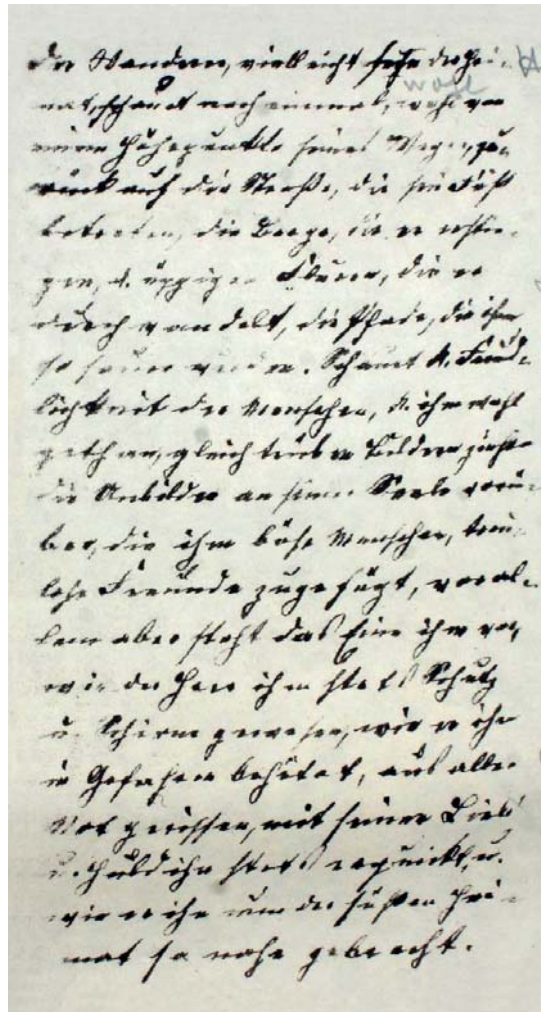 Der Wanderer, vielleicht schon der Hei-
wohl
mat, schaut noch einmal, wohl von
einem Höhepunkte seines Weges, zu-
rück auf die Straße, die sein Fuß
betreten, die Berge, die er erstie-
gen, d. üppigen Fluren, die er
durchwandelt, die Pfade, die ihm
so sauer wurden. Schaut d. Freund-
lichkeit der Menschen, d. ihm wohl
gethan, gleich trüben Bildern ziehen
die Unbilden an seiner Seele vorü-
ber, die ihm böse Menschen, treu-
lose Freunde zugefügt, vor al-
lem aber steht das Eine ihm vor,
wie der Herr ihm stets Schutz
u. Schirm gewesen, wie er ihn
in Gefahren behütet, aus aller
Not gerissen, mit seiner Liebe
u. Huld ihn stets erquickt, u.
wie er ihn nun der süßen Hei-
mat so nahe gebracht.